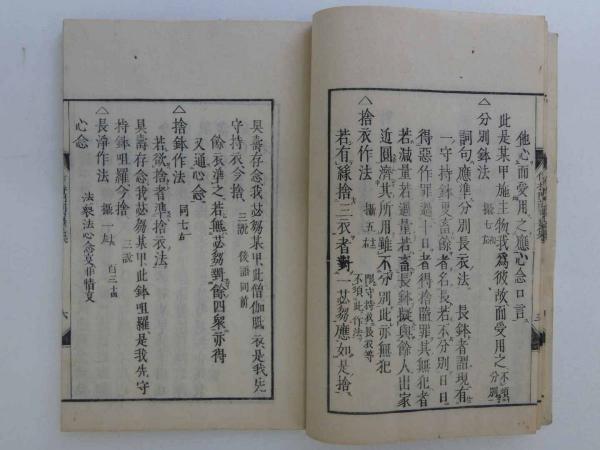 他心而受用之應心念口言
此是某甲施主物我爲彼故而受用之 不須分別
△分別鉢法 攝七
詞句應準分別長衣法 長鉢者謂現有
一守持鉢更畜餘者名長若不分別日日
得惡作罪過十日者得捨墮罪其無犯者
若減量若過量若畜長鉢擬與餘人出家
近圓濟其所用雖不分別此亦無犯
△捨衣作法 攝五 限守持我長我等不須此作法
若有緣捨三衣者對一苾芻應如是捨
具壽存念我苾芻某甲此僧伽胝衣是我先
守持衣今捨 三說 後語同前
餘衣準之若無苾芻對餘四衆亦得
又通心念
△捨鉢作法 同七
若欲捨者準捨衣法
具壽存念我苾芻某甲此鉢呾羅是我先守
持鉢呾羅今捨 三說
△長淨作法 攝一 百三十
心念 法聚法心念
六
三